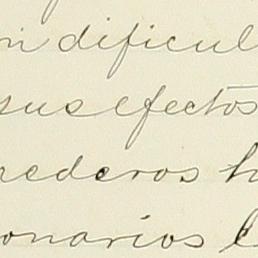 in dificul
sus efectos
rederos h
onarios l